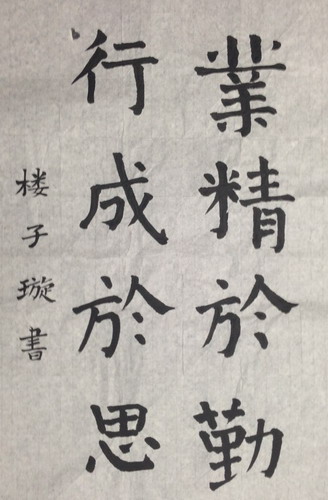 業精於勤
行成於思
楼子璇書